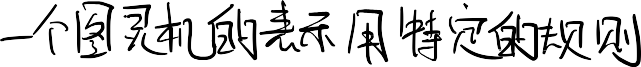 一个图灵机的表示用特定的规则